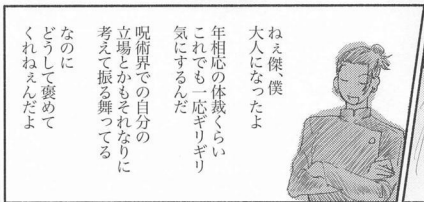 ねぇ傑、僕
大人になったよ
年相応の体裁くらい
これでも一応ギリギリ
気にするんだ
呪術界での自分の
立場とかもそれなりに
考えて振る舞ってる
なのに
どうして褒めて
くれねぇんだよ